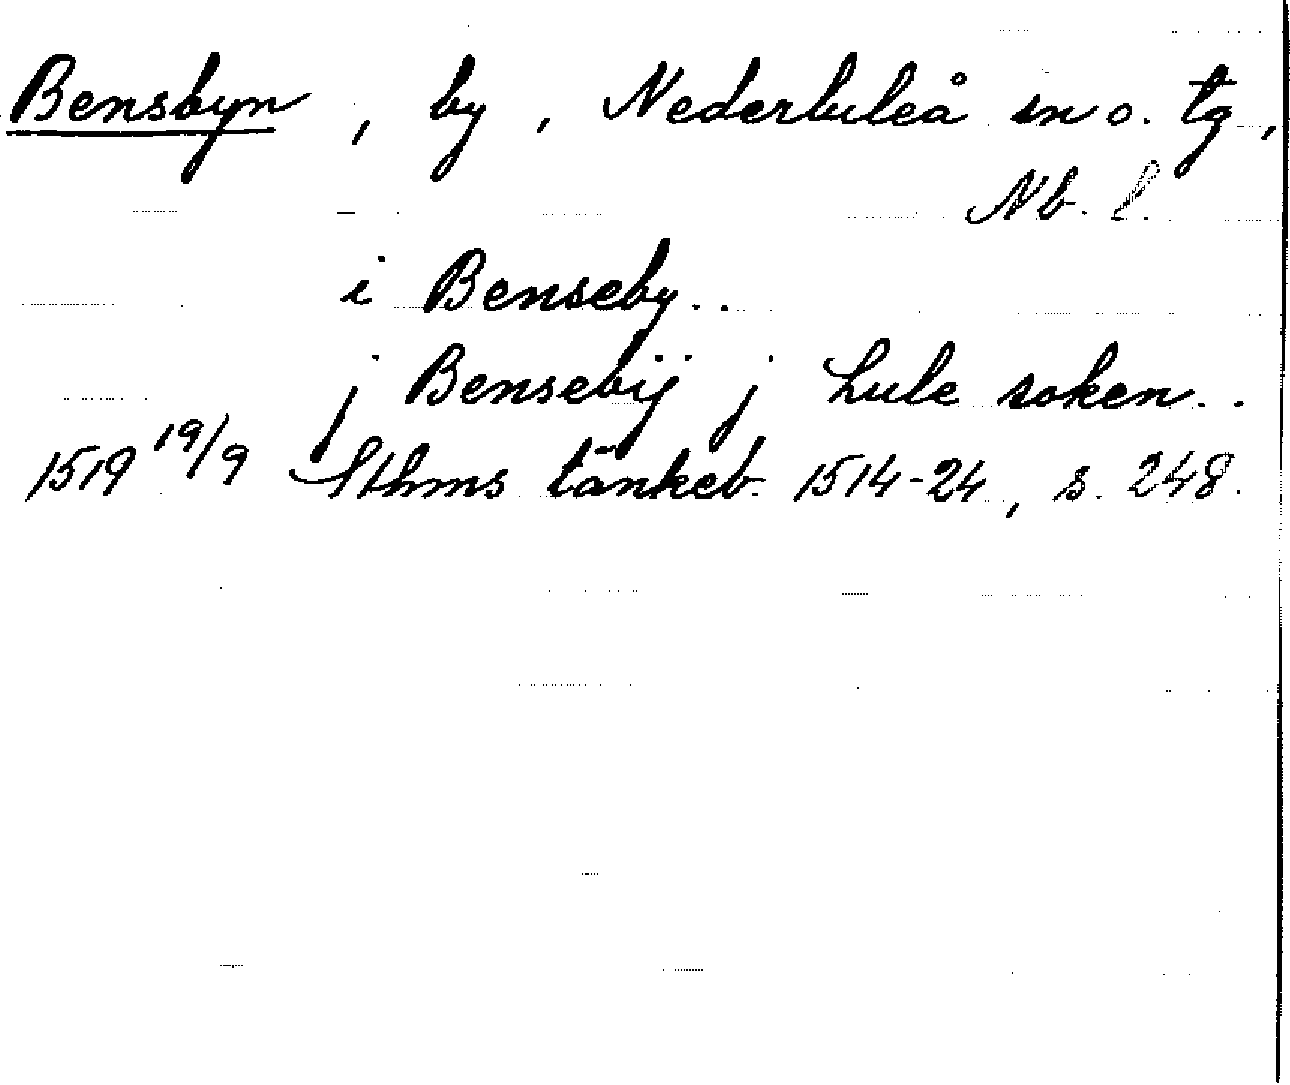 Bensbyn, by, Nederluleå sn o. tg,
Nb. l.
i Benseby..
j Bensebÿ j Lule soken..
1519 19/9 Sthms tänkeb. 1514-24, s. 248.